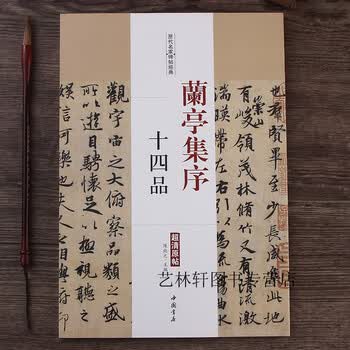 歷代名家碑帖經典
蘭亭集序
十四品
超清原帖
中國書店
也羣賢畢至少長咸集此地
有崇山峻領茂林脩竹又有清流激
湍暎帶左右引以為流觴
觀宇宙之大俯察品類之盛
所以遊目騁懷足以極視聽之
娛信可樂也夫人之相與俯仰
艺林轩图书专营店